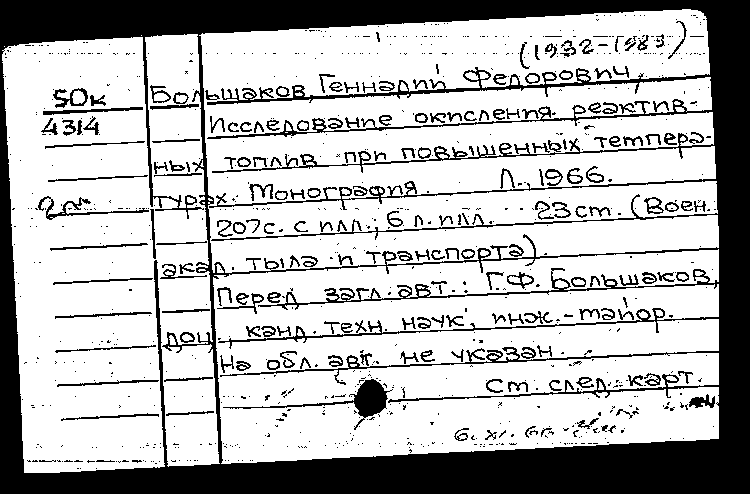 (1932-1983)
50к Большаков, Геннадий Федорович,
4314 Исследование окисления реактив-
ных топлив при повышенных темпера-
2 турах. Монография. Л., 1966.
207с. с илл.; 6 л. илл. 23 ст. (Воен.
акад. тыла и транспорта).
Перед загл. авт.: Г.Ф. Большаков,
доц., канд. техн. наук, инж.-майор.
На обл. авт. не указан.
Ст. след. карт.